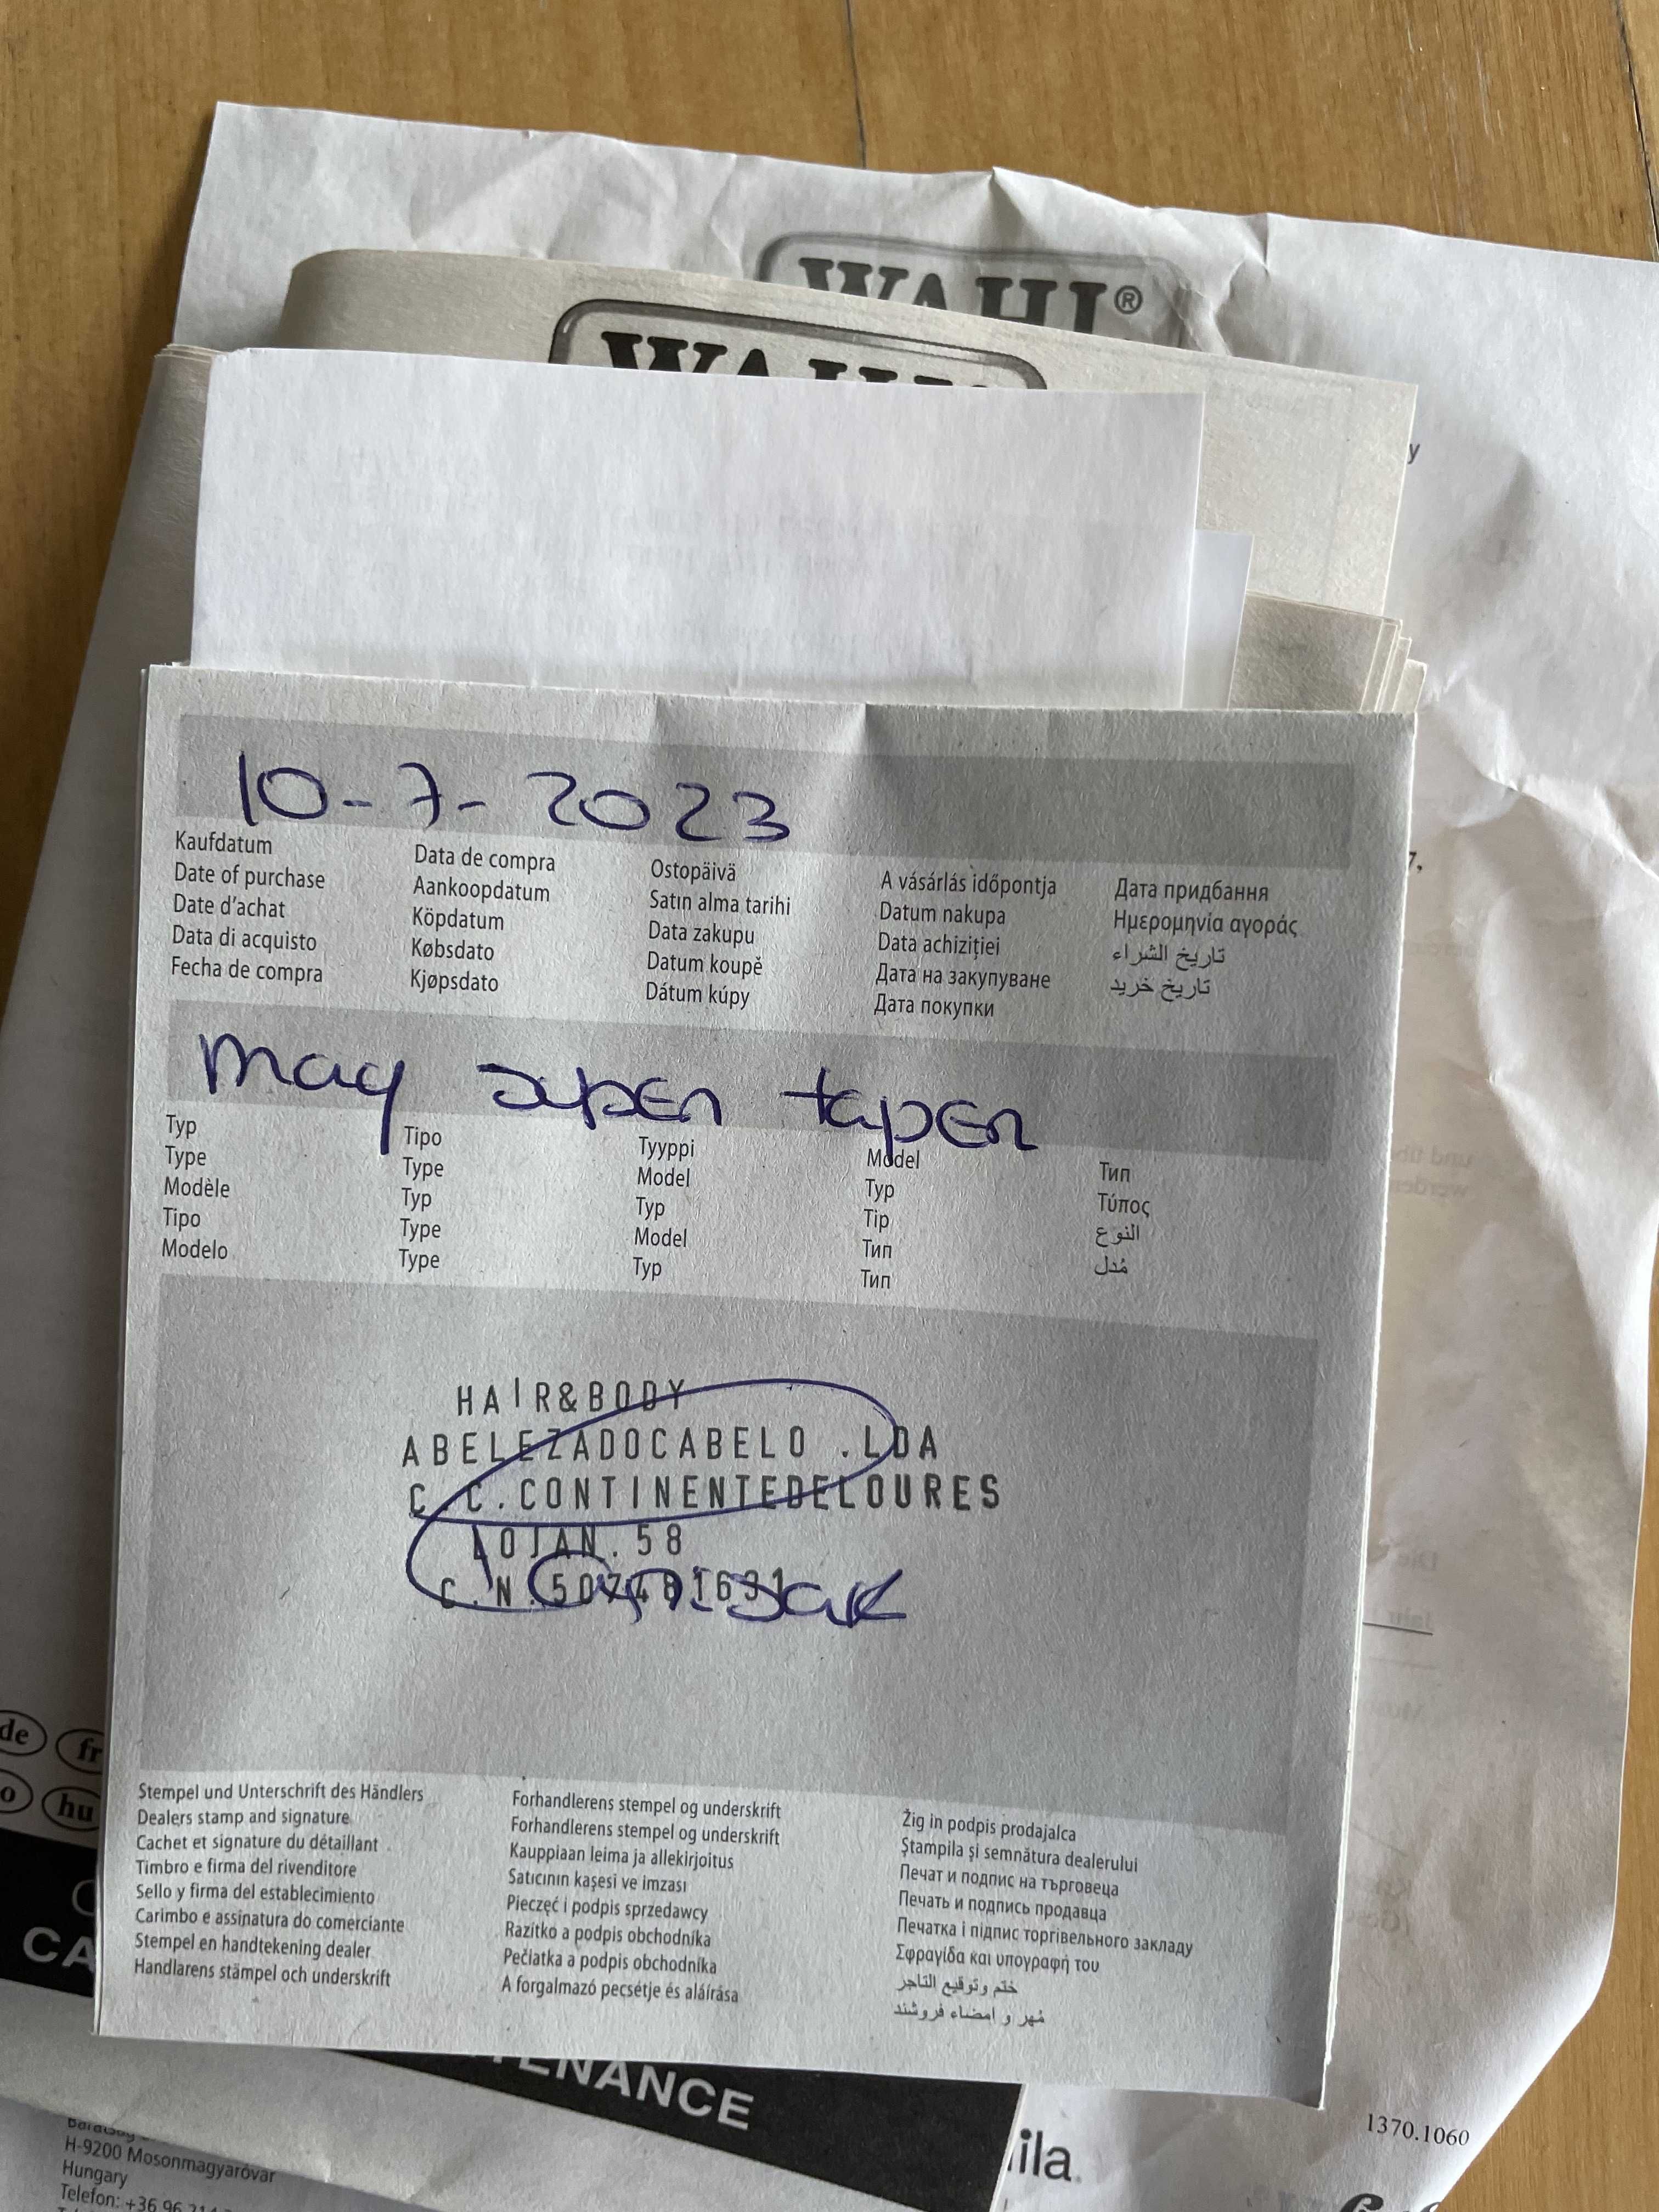 WAHL®
WAHL
y
7,
10-7-2023
Kaufdatum
Date of purchase
Date d'achat
Data di acquisto
Fecha de compra
Data de compra
Aankoopdatum
Köpdatum
Købsdato
Kjøpsdato
Ostopäivä
Satın alma tarihi
Data zakupu
Datum koupě
Dátum kúpy
A vásárlás időpontja
Datum nakupa
Data achiziției
Дата на закупуване
Дата покупки
Дата придбання
Ημερομηνία αγοράς
تاريخ الشراء
تاریخ خرید
mag super taper
Typ
Type
Modèle
Tipo
Modelo
Tipo
Type
Typ
Type
Type
Tyyppi
Model
Typ
Model
Typ
Model
Typ
Tip
Тип
Тип
Тип
Τύπος
النوع
مُدل
HAIR&BODY
ABELEZADOCABELO .LDA
C.C.CONTINENTEDELOURES
LOJAN.58
C.N.507481631
Stempel und Unterschrift des Händlers
Dealers stamp and signature
Cachet et signature du détaillant
Timbro e firma del rivenditore
Sello y firma del establecimiento
Carimbo e assinatura do comerciante
Stempel en handtekening dealer
Handlarens stämpel och underskrift
Forhandlerens stempel og underskrift
Forhandlerens stempel og underskrift
Kauppiaan leima ja allekirjoitus
Satıcının kaşesi ve imzası
Pieczęć i podpis sprzedawcy
Razítko a podpis obchodníka
Pečiatka a podpis obchodníka
A forgalmazó pecsétje és aláírása
Žig in podpis prodajalca
Ștampila și semnătura dealerului
Печат и подпис на търговеца
Печать и подпись продавца
Печатка і підпис торгівельного закладу
Σφραγίδα και υπογραφή του
ختم وتوقيع التاجر
مُهر و امضاء فروشند
de fr
o hu
CA
TENANCE
H-9200 Mosonmagyaróvár
Hungary
Telefon: +36 96
ila
1370.1060